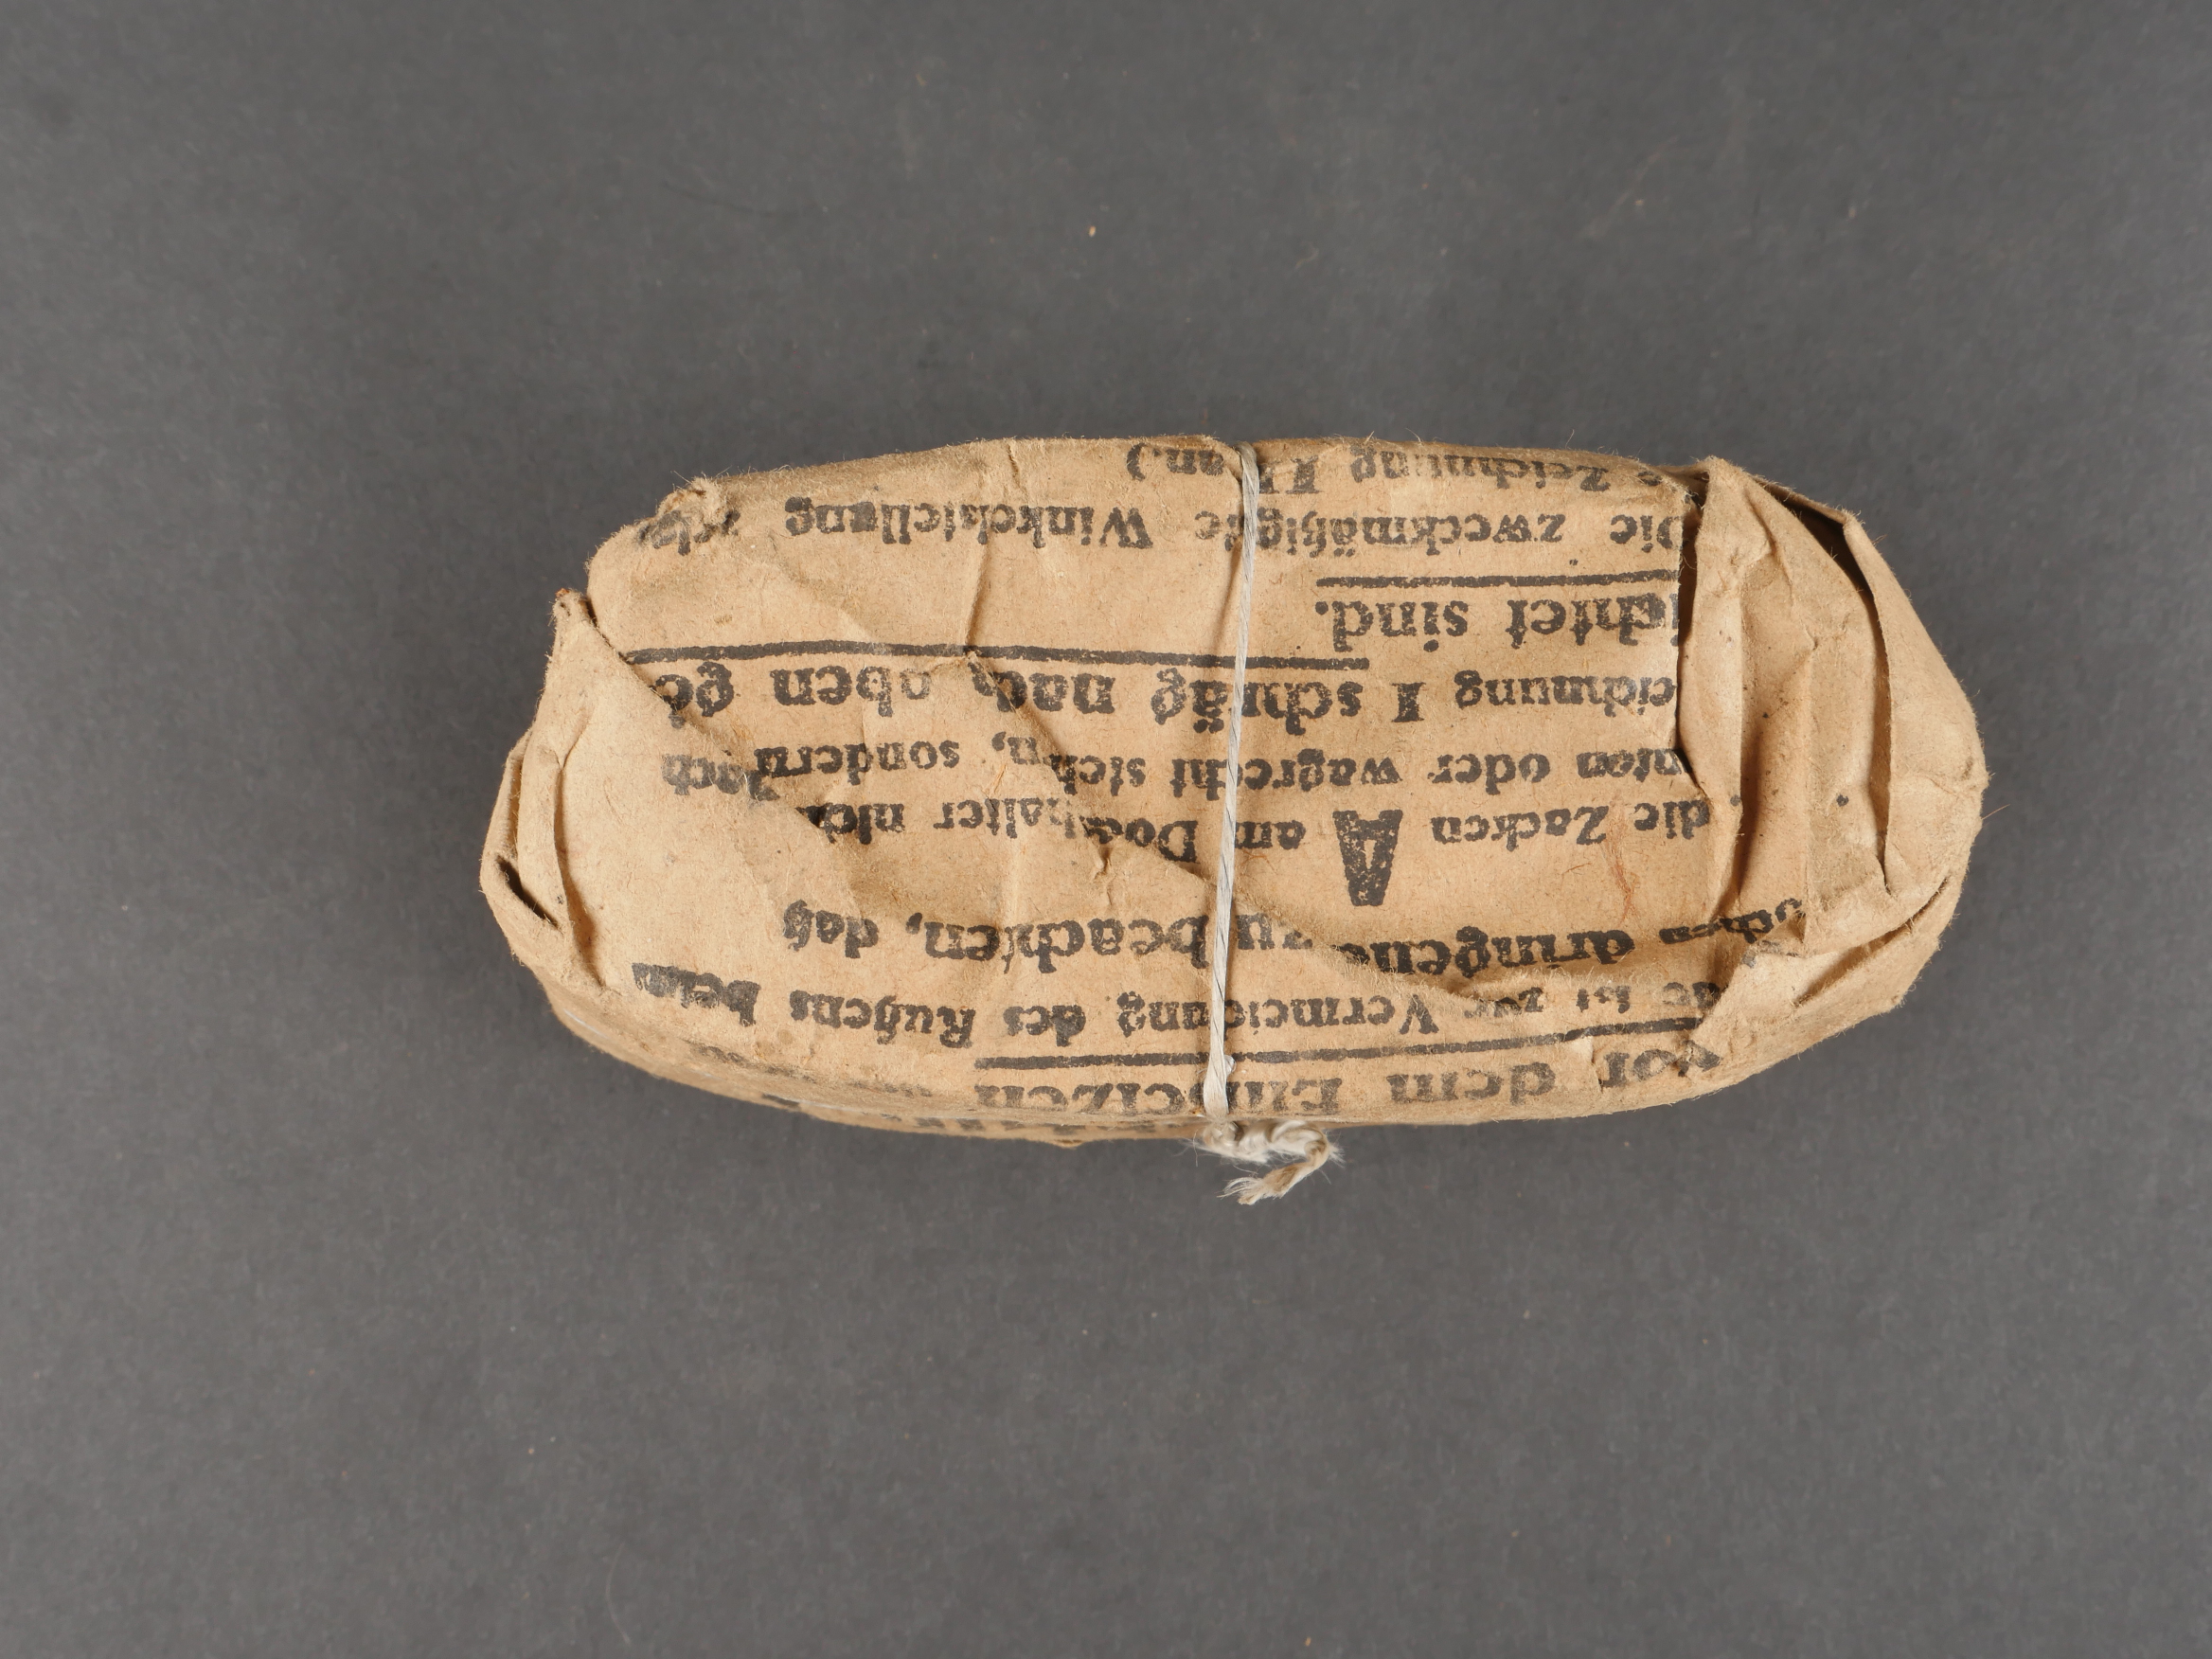 vor dem Einsetzen
ist zur Vermeidung des Rußens beim
ochen dringend zu beachten, daß
die Zacken A am Dochthalter nich
unten oder wagrecht stehen, sondern nach
eichnung I schräg nach oben ge
ichtet sind.
Die zweckmäßigste Winkelstellung
Zeichnung II an.)